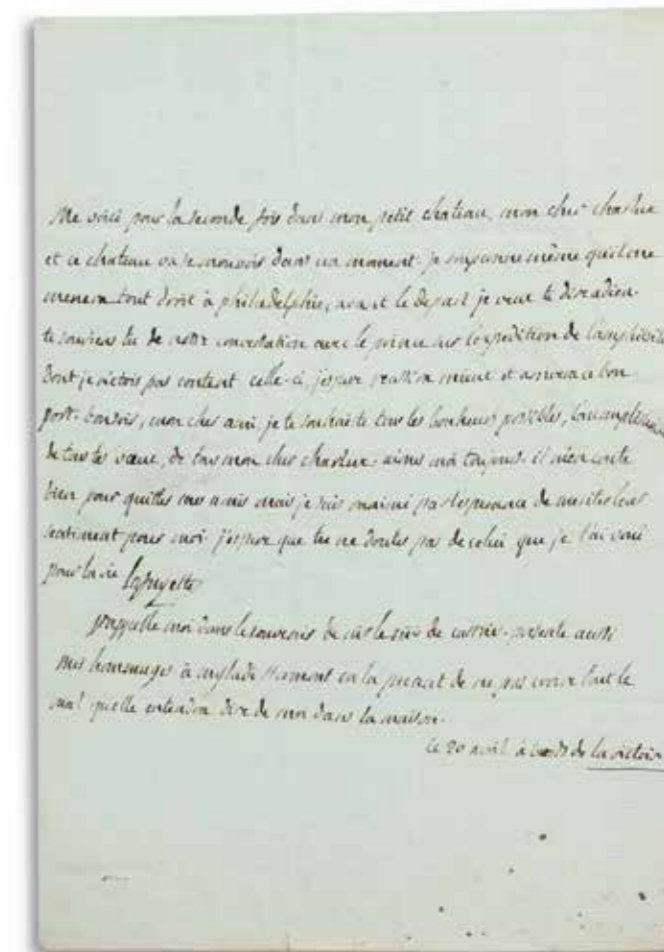 Me voici pour la seconde fois dans mon petit chateau, mon cher charlus
et ce chateau va se mouvoir dans un moment. je soupconne même quil me
menera tout droit à philadelphie, avant le depart je veux te dire adieu.
te souviens tu de notre contestation avec le prince sur l'expedition de
dont je n'etois pas content celle-ci, j'espere reussira mieux et arrivera a bon
port. bonsoir, mon cher ami, je te souhaite tous les bonheurs possibles,
de tous tes vœux, de tous mon cher charlus. aimes moi toujours. il m'en coute
bien pour quitter mes amis mais je suis ranimé par l'esperance de meriter leur
sentiment pour moi. j'espere que tu ne doutes pas de celui que je t'ai voué
pour la vie Lafayette
rappelle moi dans le souvenir de de castries. presente aussi
mes hommages à en la priant de ne pas croire tout le
mal quelle entendra dire de moi dans la maison.
ce 20 avril à bord de la victoire